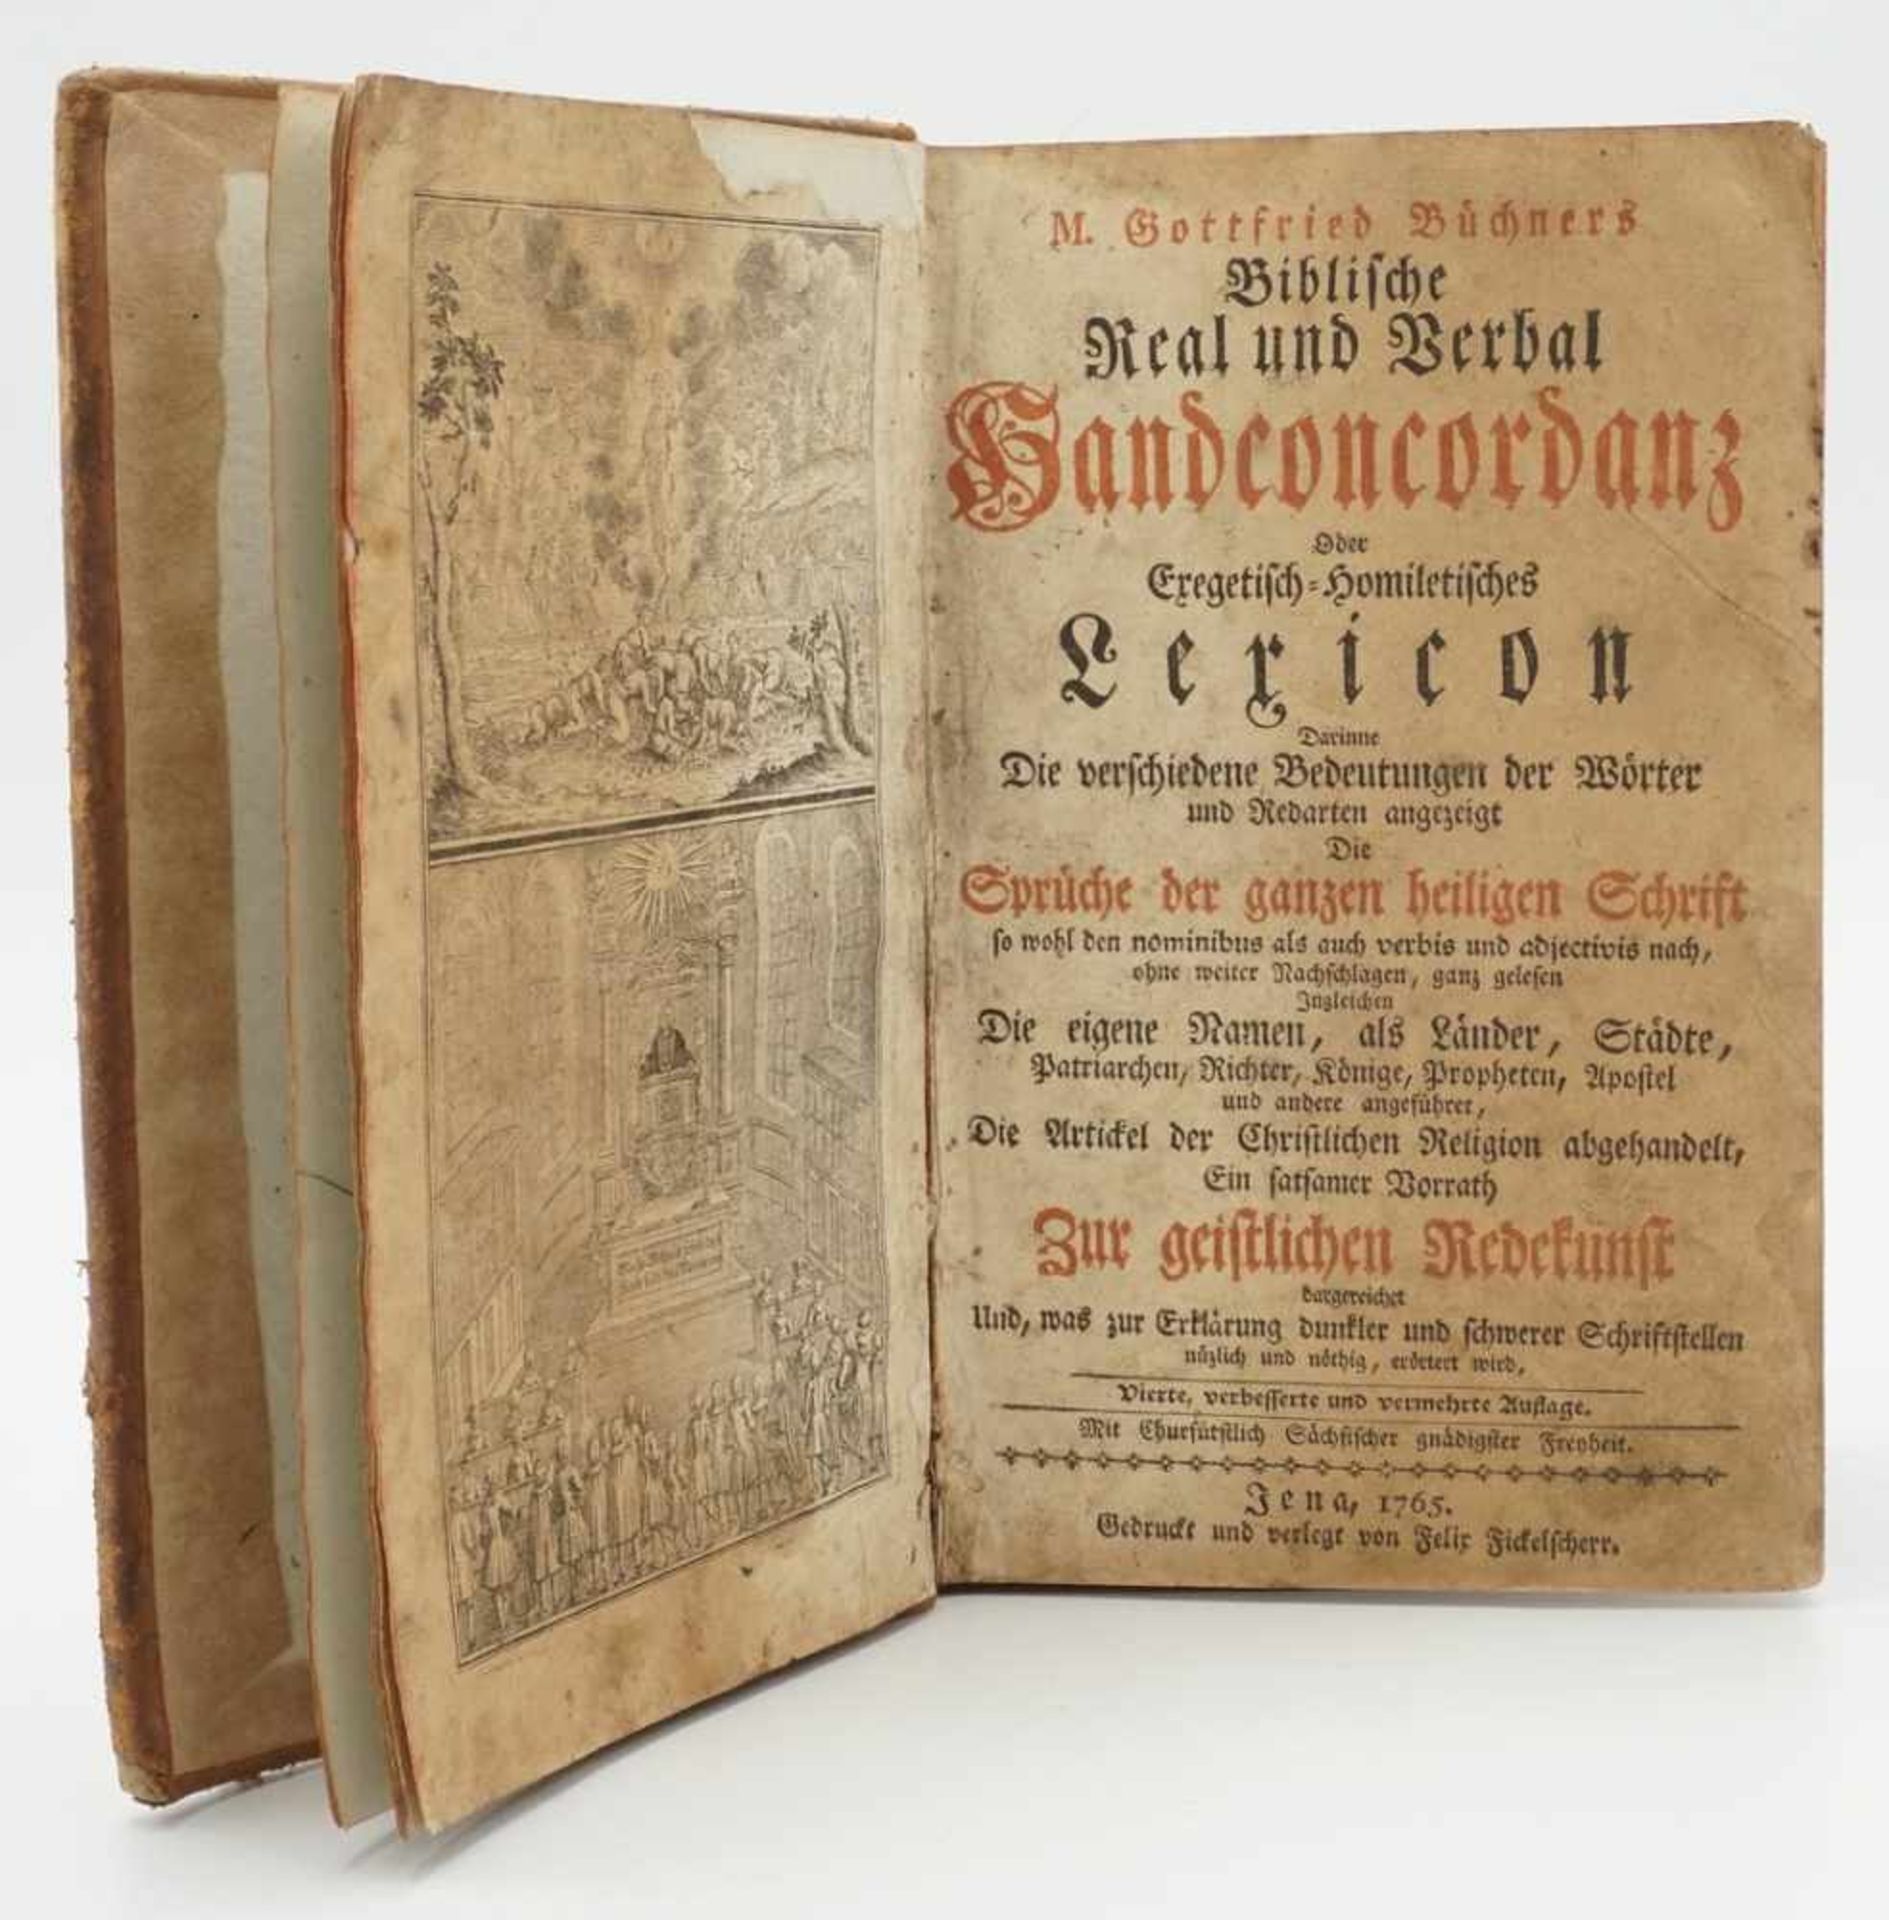 M. Gottfried Büchners
Biblische
Real und Verbal
Handconcordanz
Oder
Exegetisch-Homiletisches
Lexicon
Darinne
Die verschiedene Bedeutungen der Wörter
und Redarten angezeigt
Die
Sprüche der ganzen heiligen Schrift
so wohl den nominibus als auch verbis und adjectivis nach,
ohne weiter Nachschlagen, ganz gelesen
Ingleichen
Die eigene Namen, als Länder, Städte,
Patriarchen, Richter, Könige, Propheten, Apostel
und andere angeführet,
Die Artickel der Christlichen Religion abgehandelt,
Ein satsamer Vorrath
Zur geistlichen Redekunst
dargereichet
Und, was zur Erklärung dunkler und schwerer Schriftstellen
nüzlich und nöthig, erörtert wird,
Vierte, verbesserte und vermehrte Auflage.
Mit Churfürstlich Sächsischer gnädigster Freyheit.
Jena, 1765.
Gedruckt und verlegt von Felix Fickelscherr.